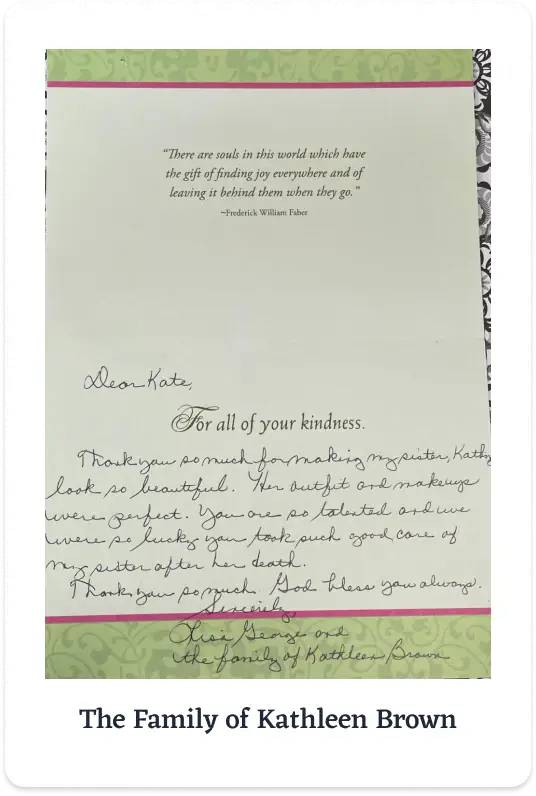 “There are souls in this world which have
the gift of finding joy everywhere and of
leaving it behind them when they go.”
~Frederick William Faber
Dear Kate,
For all of your kindness.
Thank you so much for making my sister, Kathy
look so beautiful. Her outfit and makeup
were perfect. You are so talented and we
were so lucky you took such good care of
my sister after her death.
Thank you so much. God bless you always.
Sincerely,
George and
the family of Kathleen Brown
The Family of Kathleen Brown